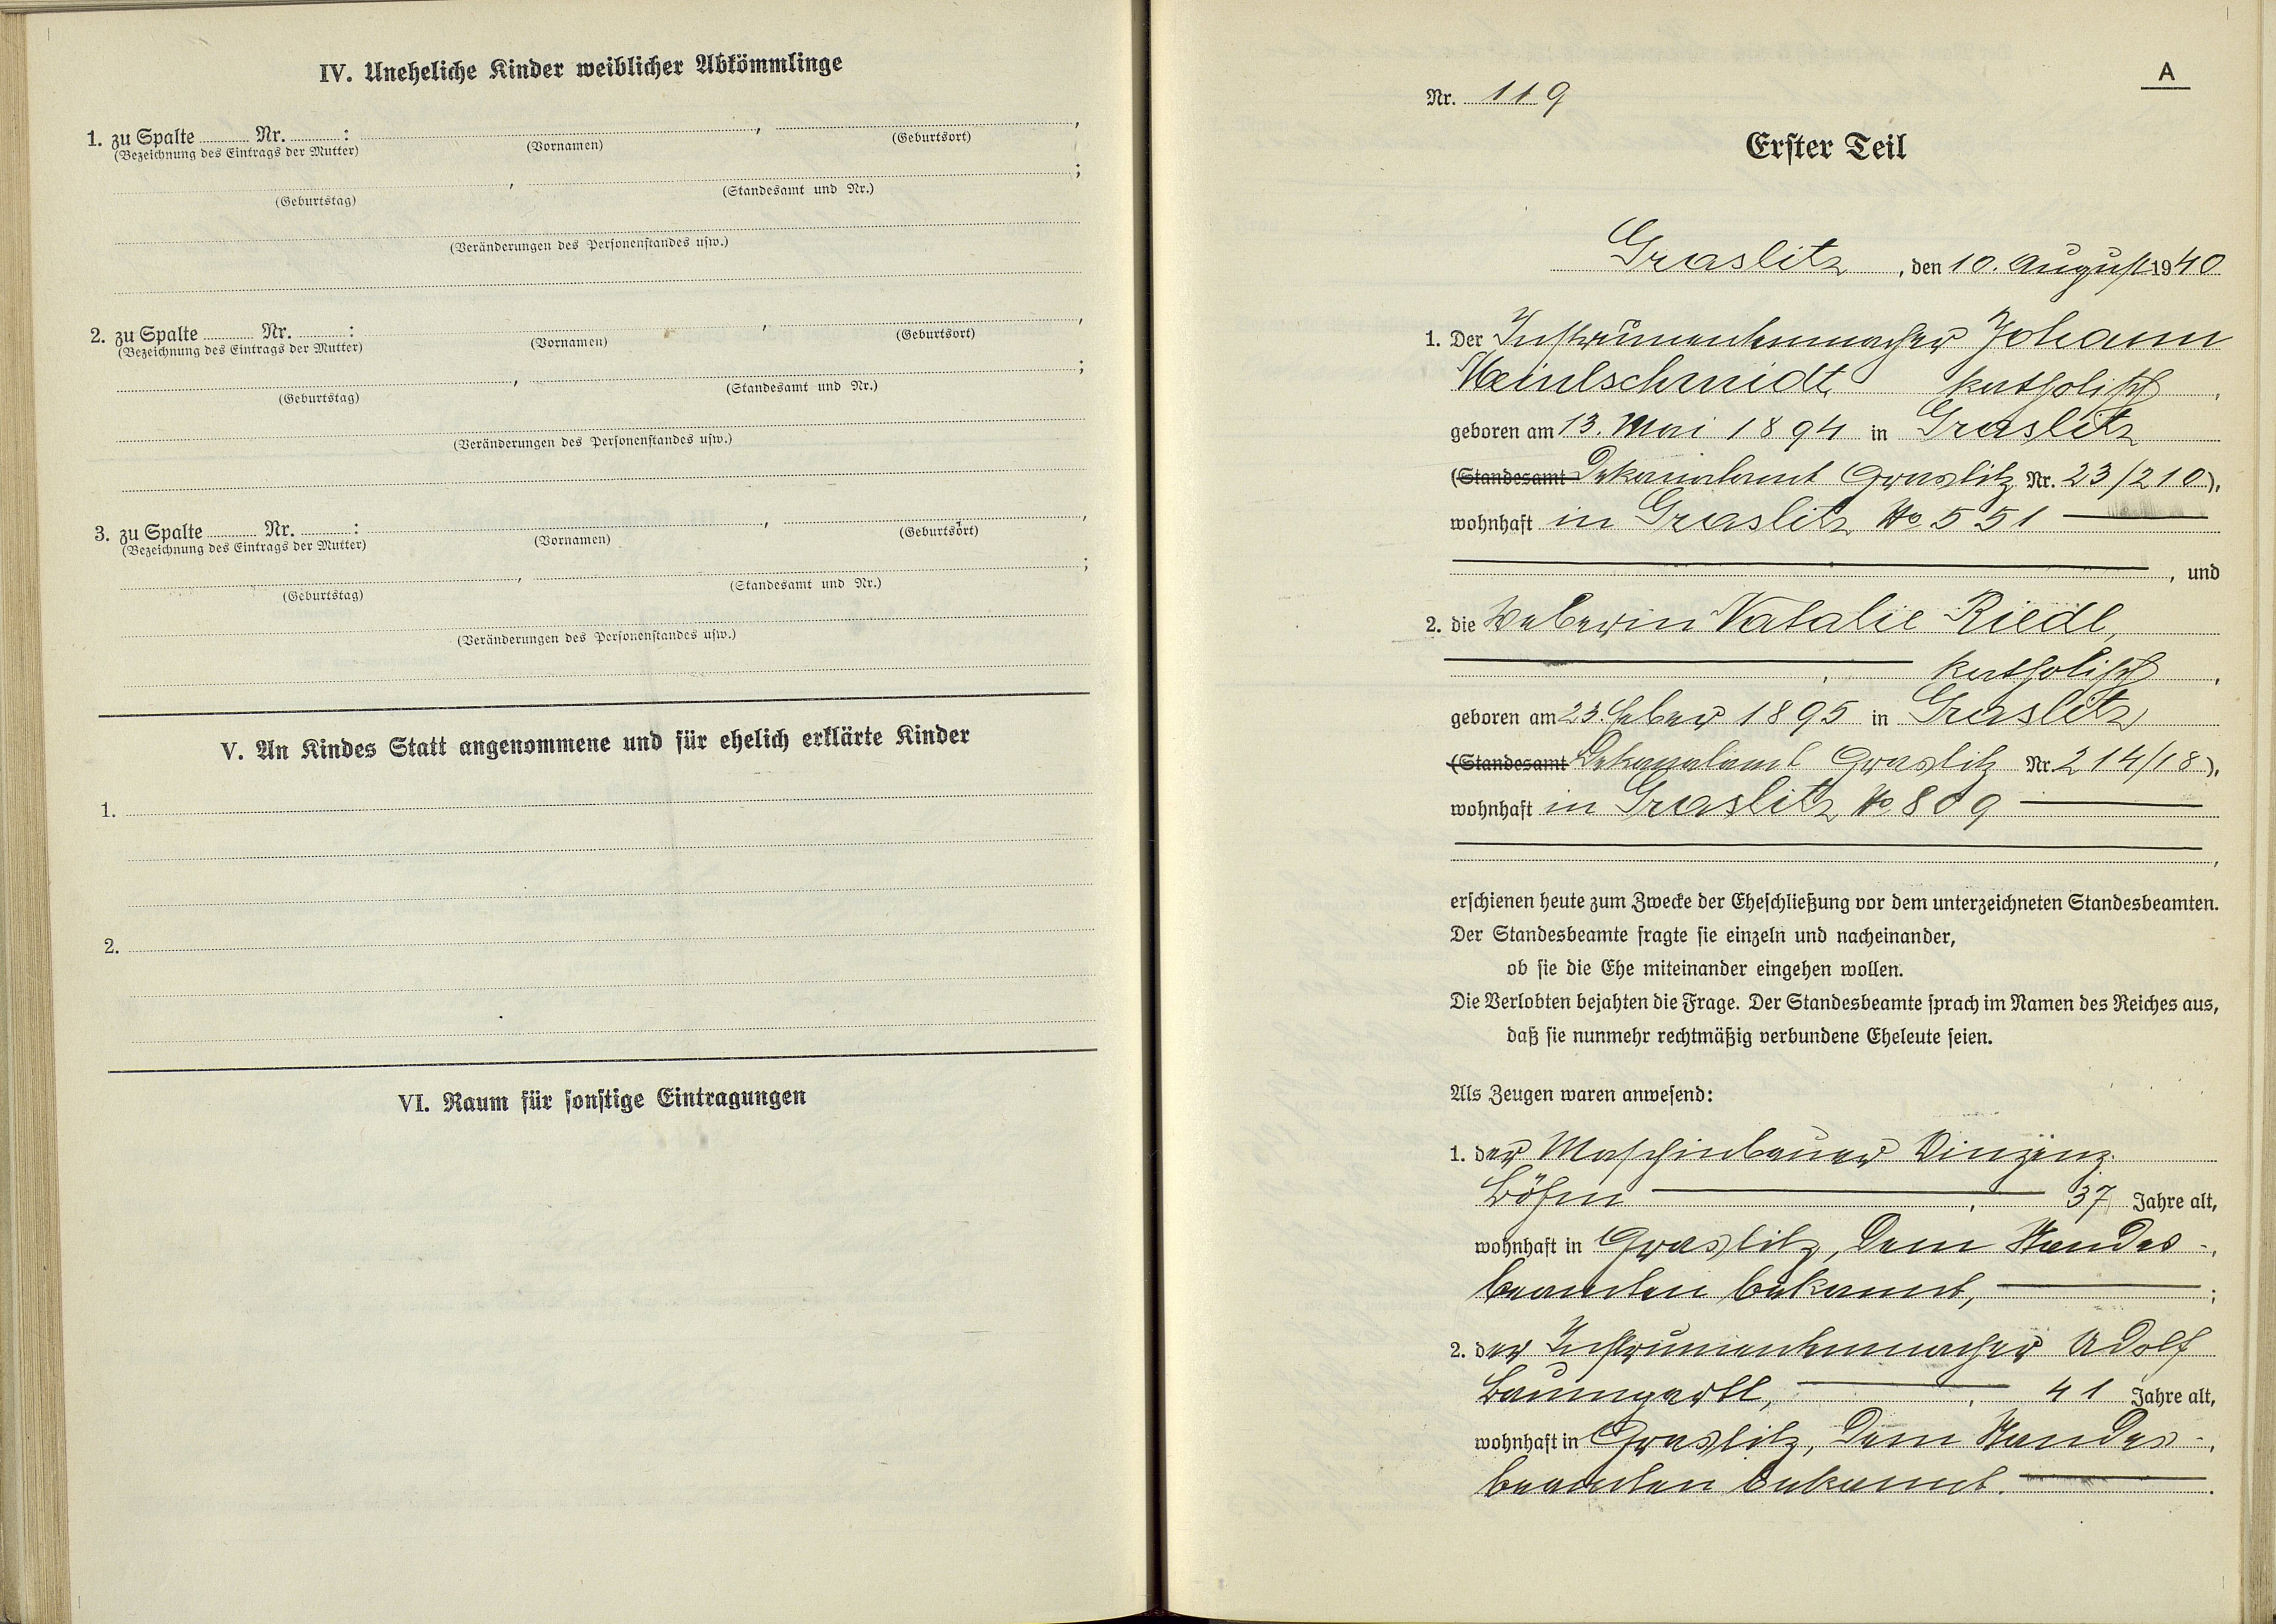 IV. Uneheliche Kinder weiblicher Abkömmlinge
1. zu Spalte ........ Nr. ........ : ........ , ........ ,
(Bezeichnung des Eintrags der Mutter) (Vornamen) (Geburtsort)
........ , ........ ;
(Geburtstag) (Standesamt und Nr.)
(Veränderungen des Personenstandes usw.)
2. zu Spalte ........ Nr. ........ : ........ , ........ ,
(Bezeichnung des Eintrags der Mutter) (Vornamen) (Geburtsort)
........ , ........ ;
(Geburtstag) (Standesamt und Nr.)
(Veränderungen des Personenstandes usw.)
3. zu Spalte ........ Nr. ........ : ........ , ........ ,
(Bezeichnung des Eintrags der Mutter) (Vornamen) (Geburtsort)
........ , ........ ;
(Geburtstag) (Standesamt und Nr.)
(Veränderungen des Personenstandes usw.)
V. An Kindes Statt angenommene und für ehelich erklärte Kinder
1.
2.
VI. Raum für sonstige Eintragungen
A
Nr. 119
Erster Teil
Graslitz, den 10. August 1940
1. Der Instrumentenmacher Johann
Meinlschmidt katholisch,
geboren am 13. Mai 1894 in Graslitz
(Standesamt Dekanalamt Graslitz Nr. 23/210),
wohnhaft in Graslitz No 551
, und
2. die Weberin Natalie Riedl,
, katholisch,
geboren am 23. Feber 1895 in Graslitz
(Standesamt Dekanalamt Graslitz Nr. 214/18),
wohnhaft in Graslitz No 809
,
erschienen heute zum Zwecke der Eheschließung vor dem unterzeichneten Standesbeamten.
Der Standesbeamte fragte sie einzeln und nacheinander,
ob sie die Ehe miteinander eingehen wollen.
Die Verlobten bejahten die Frage. Der Standesbeamte sprach im Namen des Reiches aus,
daß sie nunmehr rechtmäßig verbundene Eheleute seien.
Als Zeugen waren anwesend:
1. der Maschinbauer Vinzenz
Böhm, 37 Jahre alt,
wohnhaft in Graslitz, dem Standes-,
beamten bekannt, ;
2. der Instrumentenmacher Adolf
Baumgartl, , 41 Jahre alt,
wohnhaft in Graslitz, dem Standes-,
beamten bekannt. .